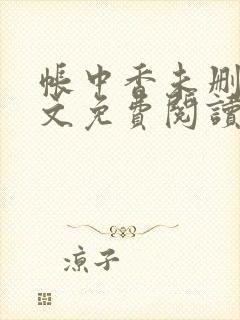 帳中香未删
文免費閱讀
涼子